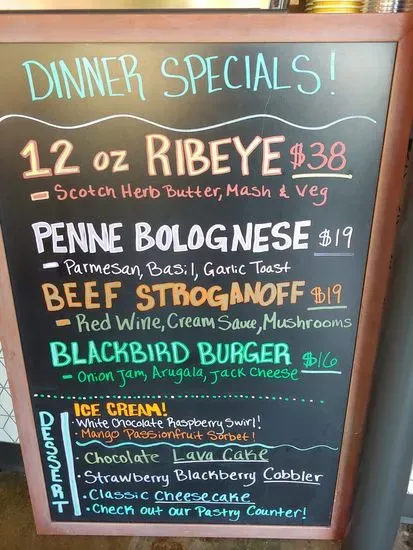 DINNER SPECIALS!
12 oz RIBEYE $38
- Scotch Herb Butter, Mash & Veg
PENNE BOLOGNESE $19
- Parmesan, Basil, Garlic Toast
BEEF STROGANOFF $19
- Red Wine, Cream Sauce, Mushrooms
BLACKBIRD BURGER $16
- Onion Jam, Arugala, Jack Cheese
DESSERT
ICE CREAM!
• White Chocolate Raspberry Swirl!
• Mango Passionfruit Sorbet!
• Chocolate Lava Cake
• Strawberry Blackberry Cobbler
• Classic Cheesecake
• Check out our Pastry Counter!